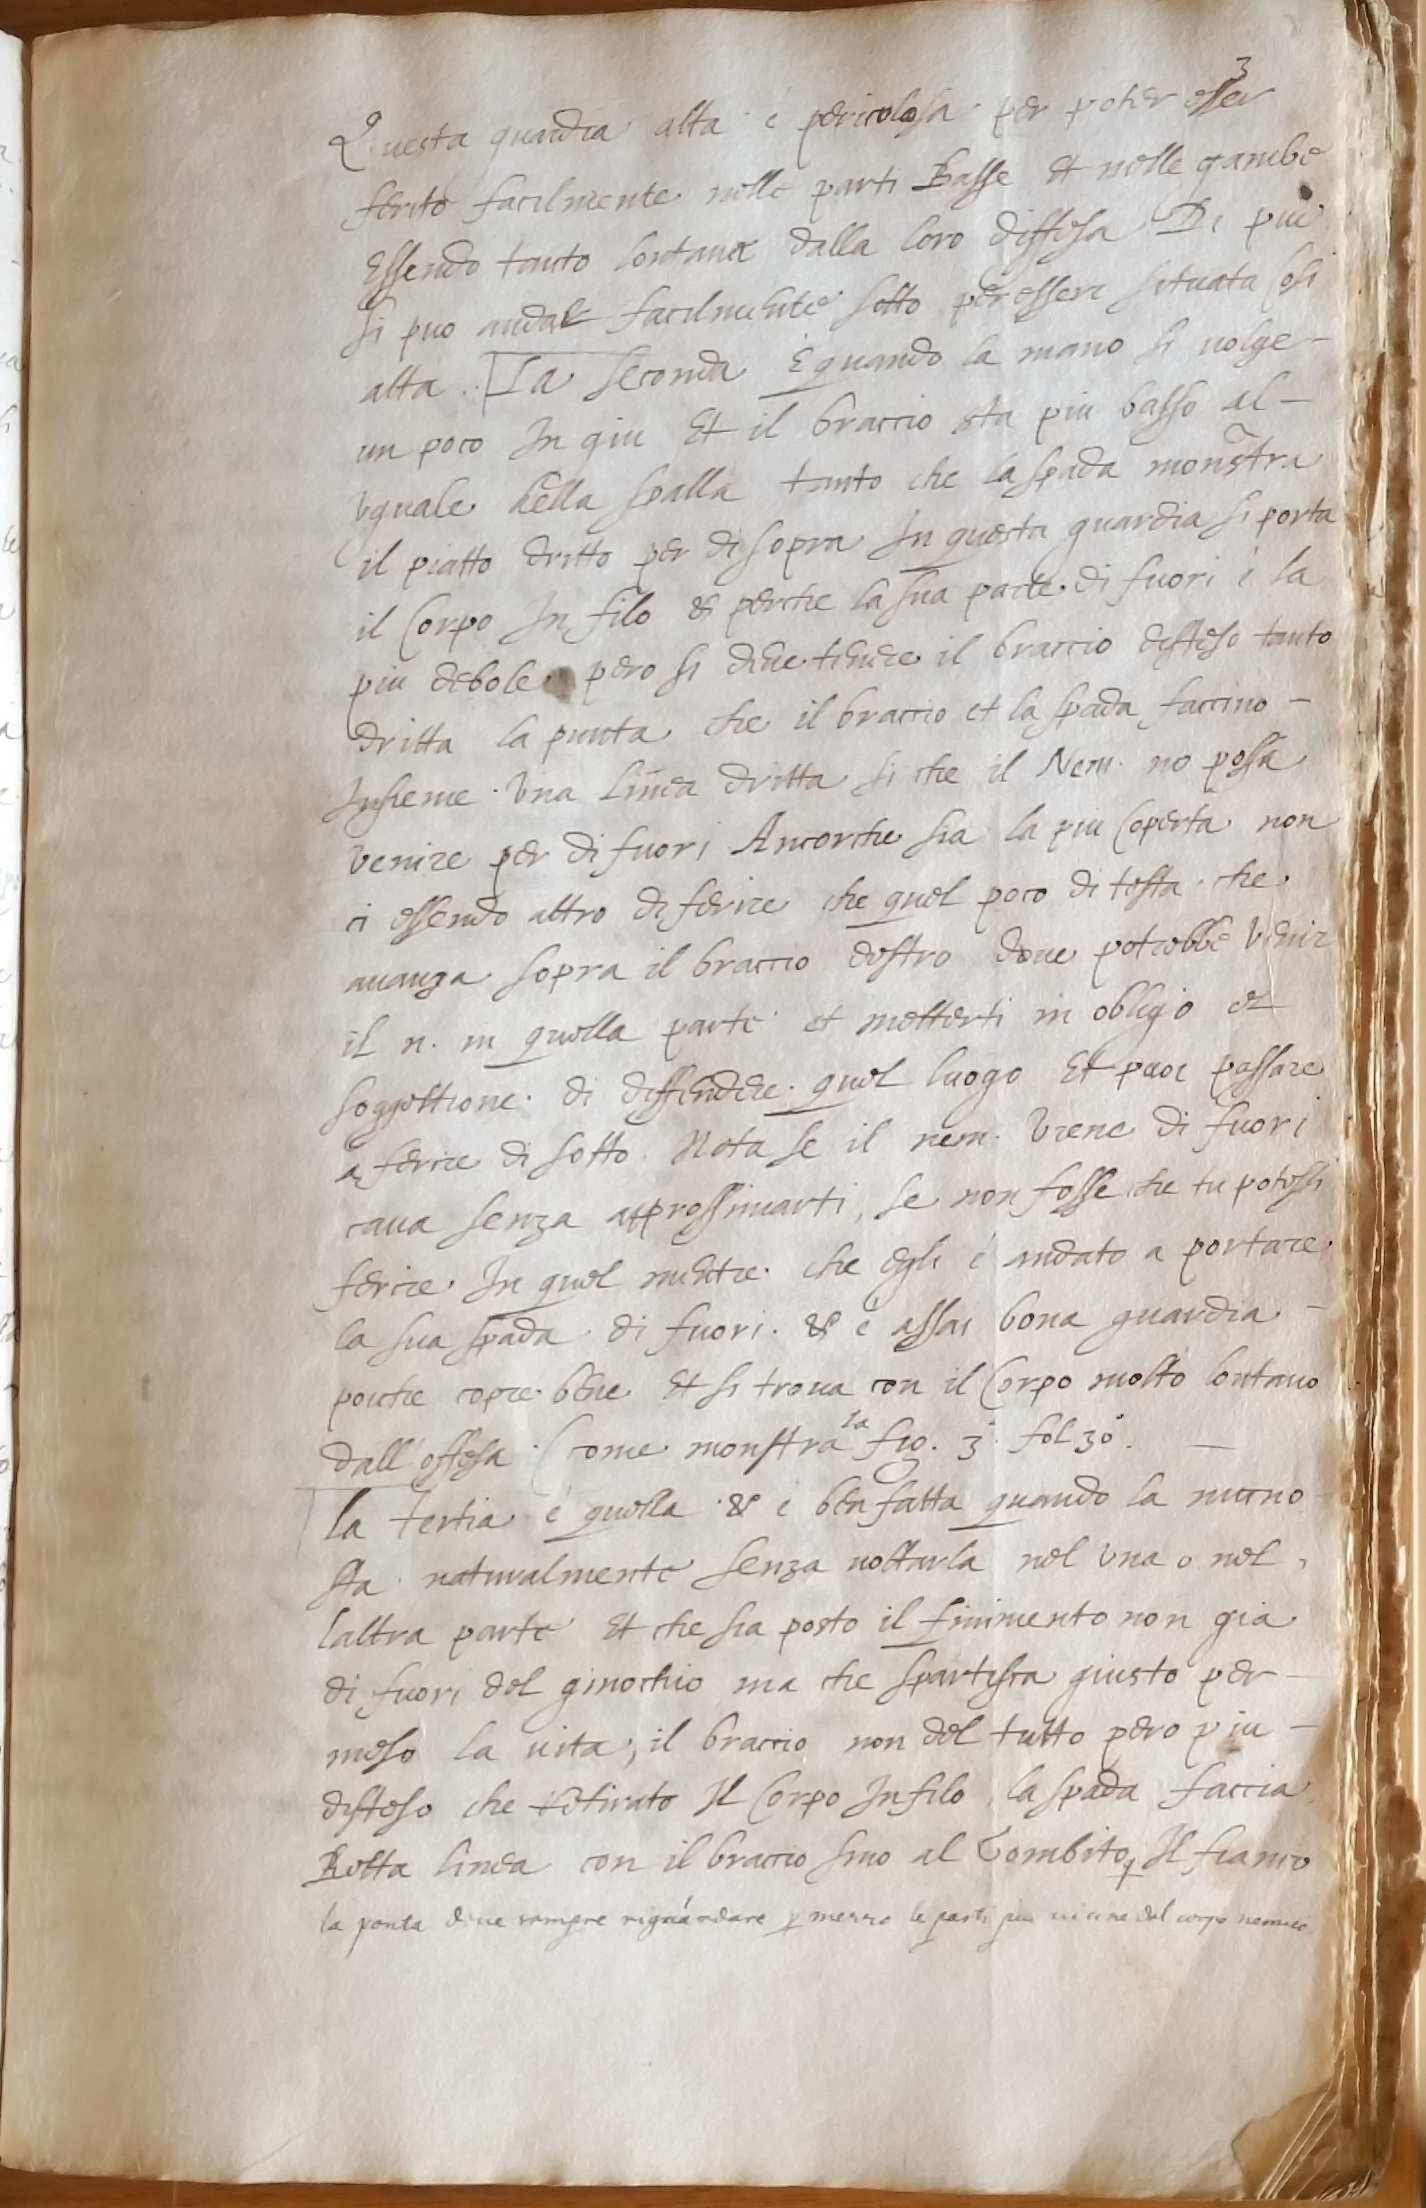 3
Questa guardia alta é pericolosa per poter esser
ferito facilmente nelle parti Basse et nelle gambe
Essendo tanto lontane dalla loro diffesa Di piu
si puo andar facilmente sotto per essere situata cosi
alta. La seconda È quando la mano si uolge –
un poco In giu Et il braccio sta piu basso al –
Vguale della spalla tanto che la spada monstra
il piatto dritto per di sopra In questa guardia si porta
il Corpo In filo & perche la sua parte di fuori é la
piu debole però si deue tenere il braccio disteso tanto
dritta la punta che il braccio et la spada faccino –
Insieme Vna Linea dritta si che il Nem. nō possa
Venire per di fuori Ancorche sia la piu Coperta non
ci essendo altro di ferire che quel poco di testa che
auanza sopra il braccio destro doue potrebbe Venir
il n. in quella parte et metterti in obligo et
soggettione di diffendere quel luogo Et puoi passare
a ferire di sotto. Nota se il nem. Viene di fuori
caua senza approssimarti, se non fosse che tu potessi
ferire In quel mentre che egli é andato a portare
la sua spada di fuori. & é assai bona guardia –
poiche copre bene Et si troua con il Corpo molto lontano
dall'offesa. (come monstra la fig. 3ª fol 30. —
La Tertia é quella & é ben fatta quando la mano
sta naturalmente senza uoltarla nel Vna o nel
laltra parte Et che sia posto il finimento non gia
di fuori del ginochio ma che spartisca giusto per –
meso la uita, il braccio non del tutto pero piu –
disteso che retirato Il Corpo In filo, la spada faccia
Retta linea con il braccio sino al Gombito, Il fianco
la ponta deue sempre riguardare p mezzo le parti piu uicine del corpo nemico